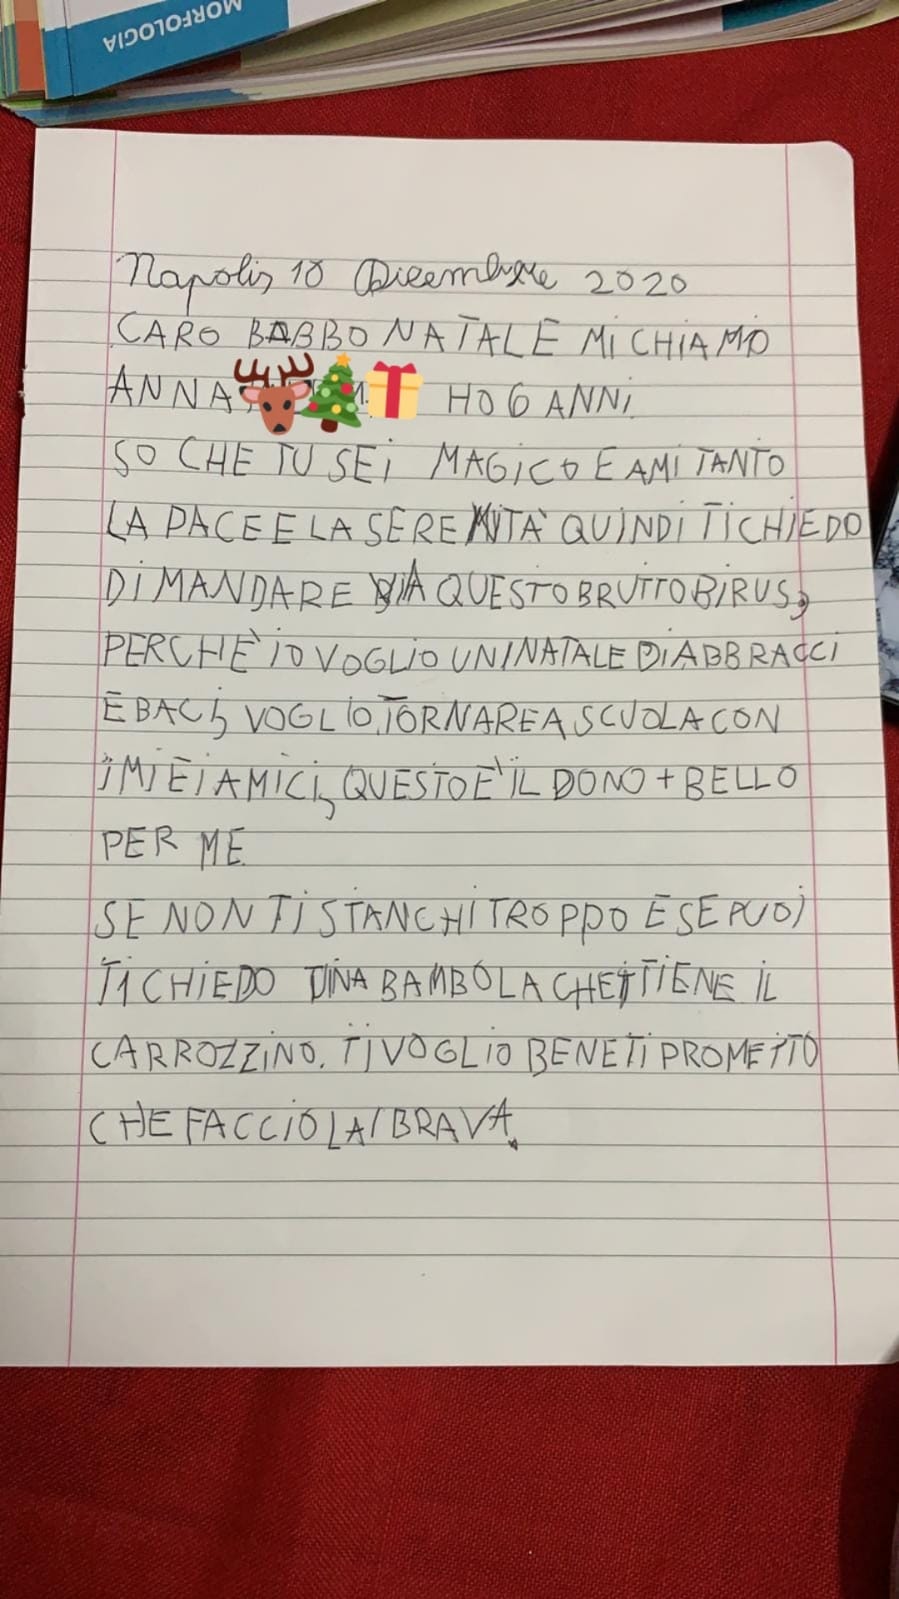 MORFOLOGIA
Napoli, 10 Dicembre 2020
CARO BABBO NATALE MI CHIAMO
ANNA HO 6 ANNI
SO CHE TU SEI MAGICO E AMI TANTO
LA PACE E LA SERENITÀ QUINDI TI CHIEDO
DI MANDARE VIA QUESTO BRUTTO BIRUS,
PERCHÈ IO VOGLIO UN NATALE DI ABBRACCI
E BACI, VOGLIO TORNARE A SCUOLA CON
I MIEI AMICI, QUESTO E' IL DONO + BELLO
PER ME
SE NON TI STANCHI TROPPO E SE PUOI
TI CHIEDO UNA BAMBOLA CHE TIENE IL
CARROZZINO. TI VOGLIO BENE TI PROMETTO
CHE FACCIO LA BRAVA.